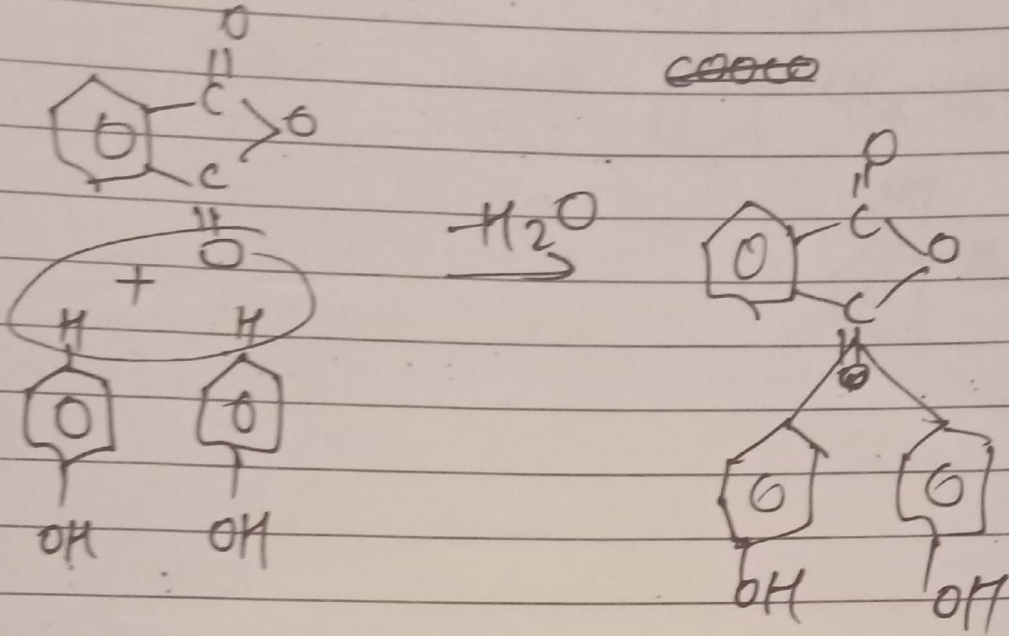 O
C O
C
O
+
H H
OH OH
-H2O
O
C O
C
OH OH